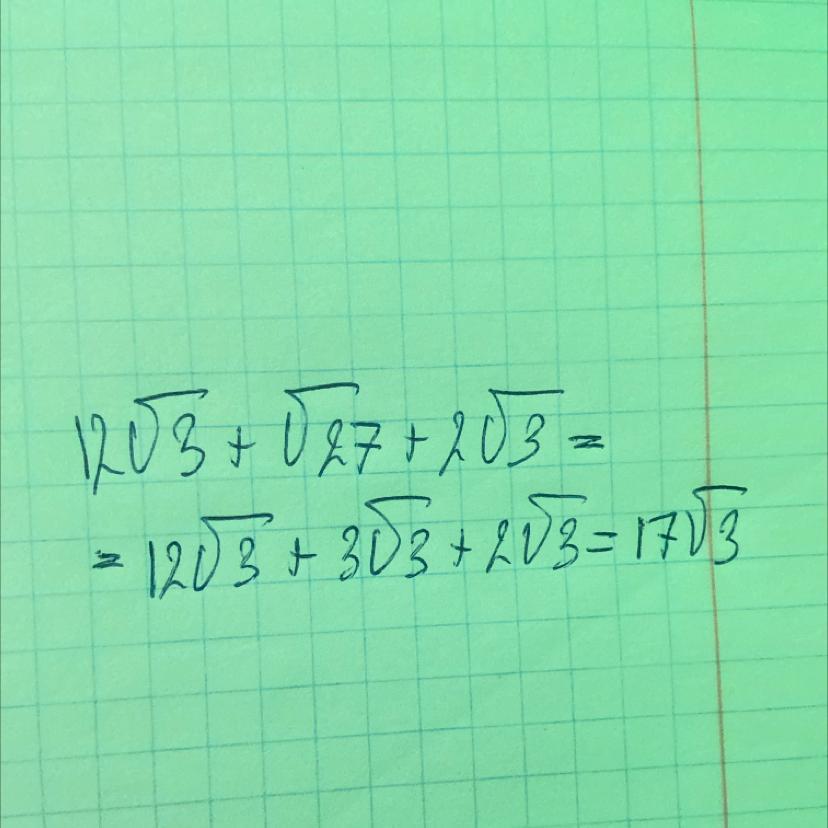 12√3 + √27 + 2√3 =
= 12√3 + 3√3 + 2√3 = 17√3